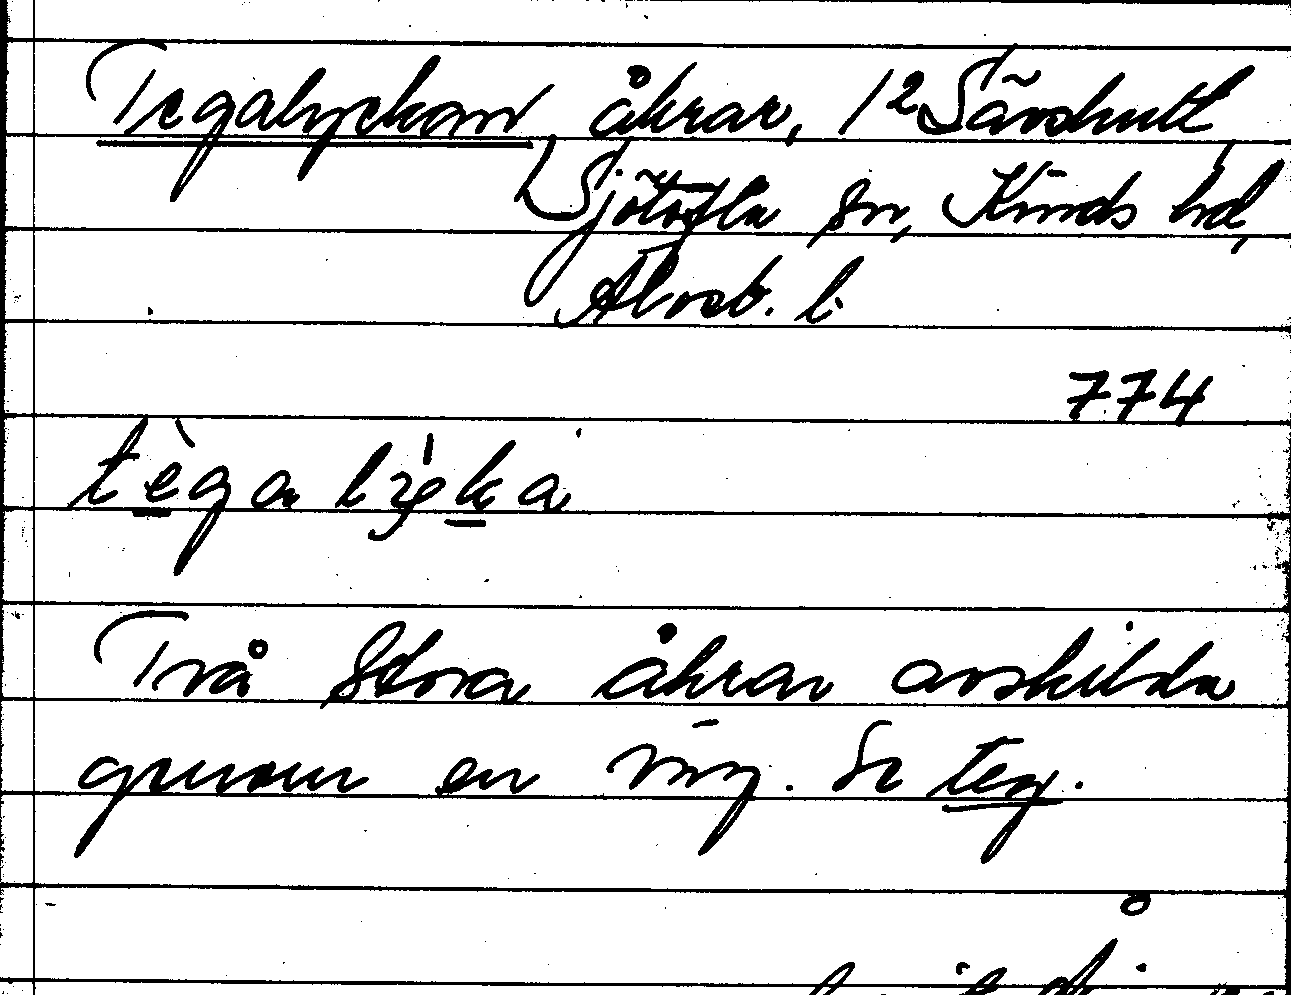 Tegalyckan åkrar, 1² Sävshult,
Sjötofta sn, Kinds hd,
Älvsb. l.
774
tèga lyc̀ka
Två stora åkrar avskilda
genom en väg. Se teg.